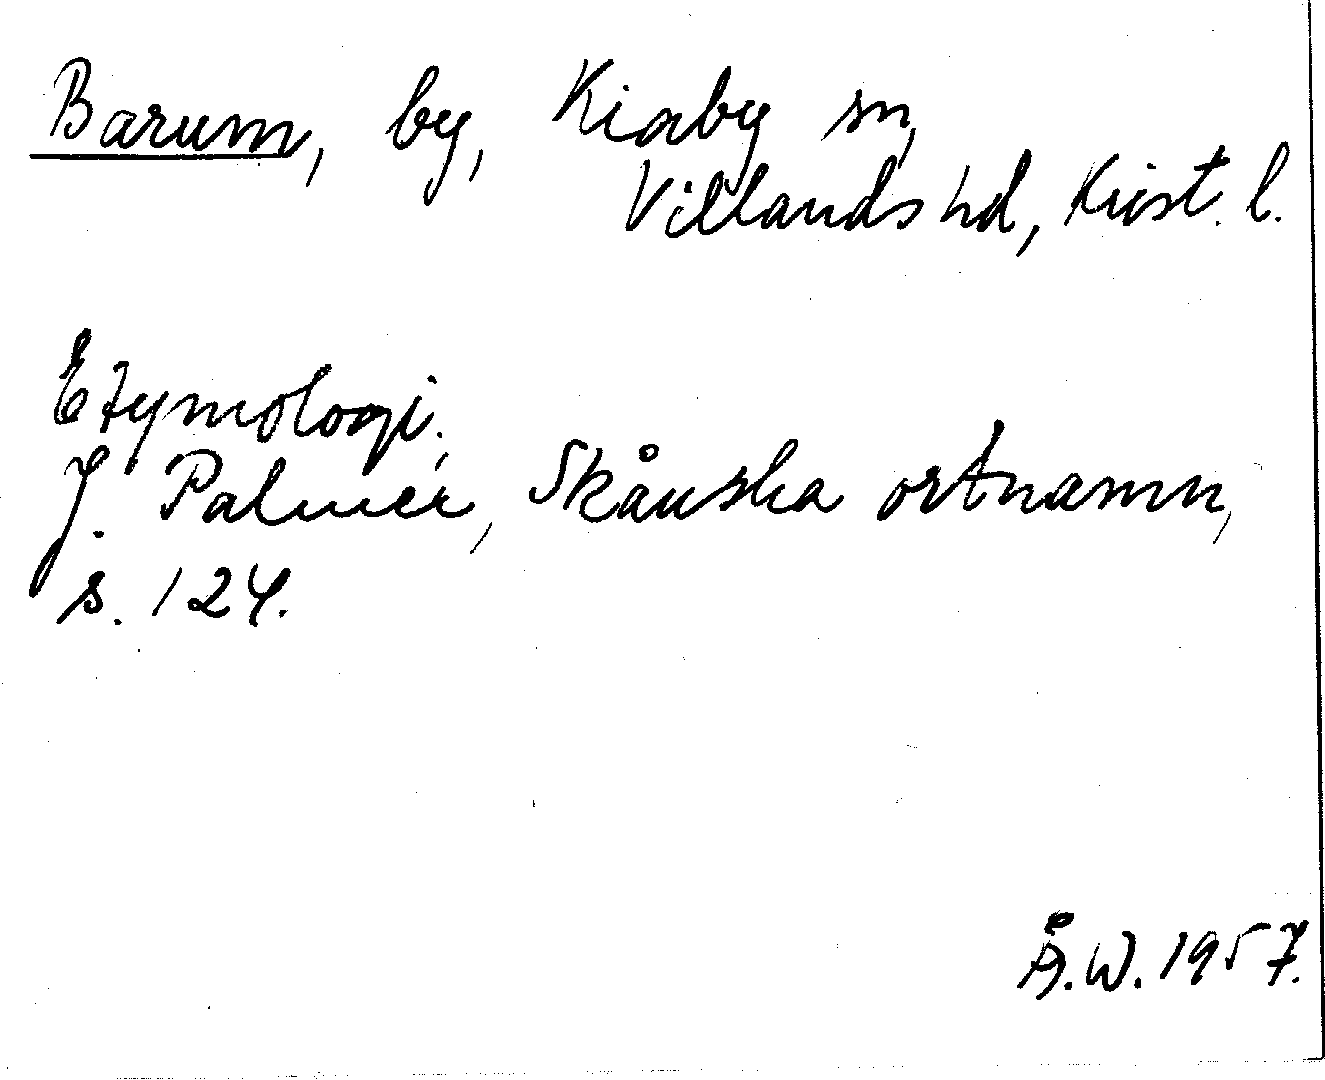 Barum, by, Kiaby sn,
Villands hd, Krist. l.
Etymologi.
J. Palmér, Skånska ortnamn,
s. 124.
Å.W. 1957.